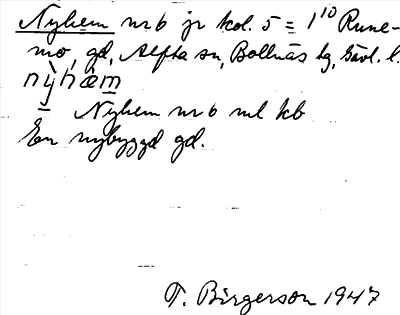 Nyhem nr 6 jr kol. 5 = 1¹⁰ Rune-
mo, gd, Alfta sn, Bollnäs tg, Gävl. l.
nỳhæ̀m
= Nyhem nr 6 ml kb
En nybyggd gd.
T. Birgerson 1947